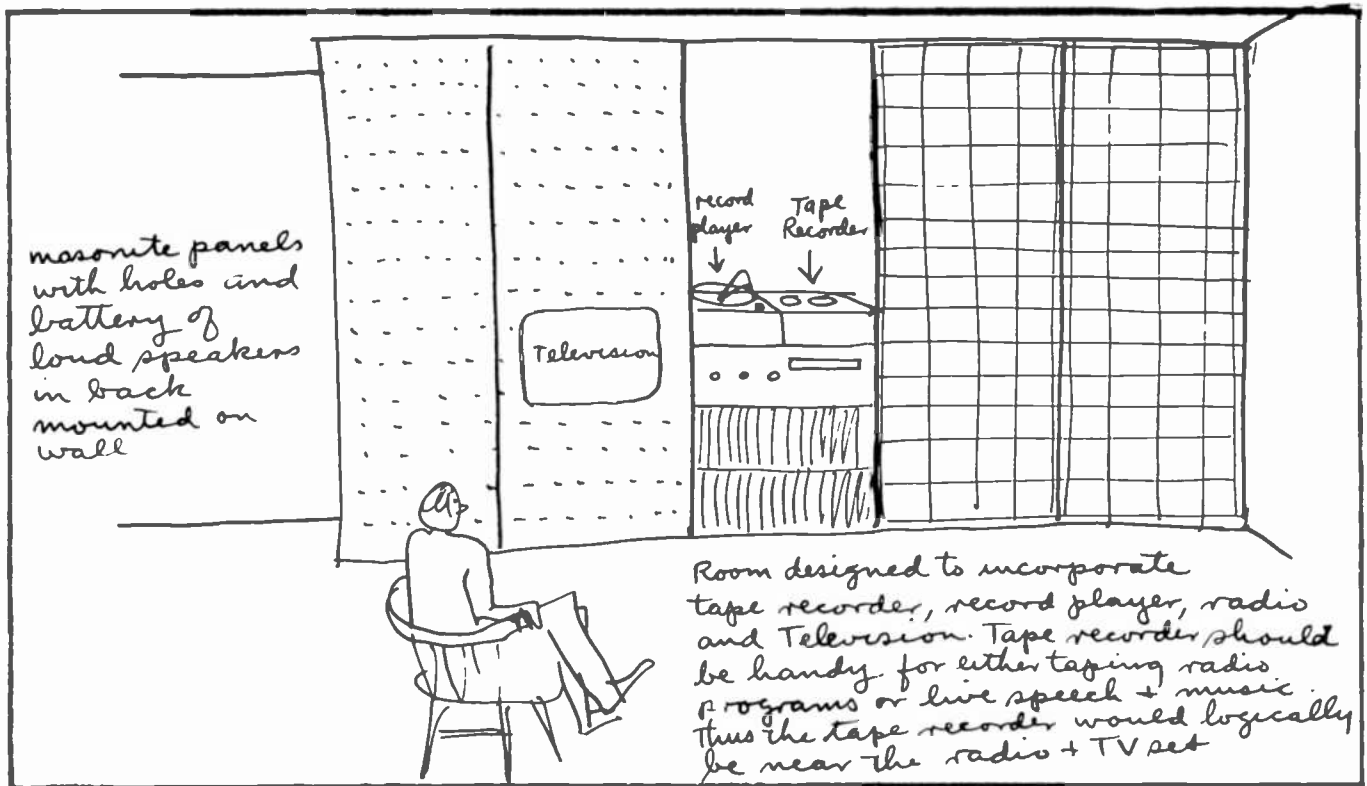 masonite panels
with holes and
battery of
loud speakers
in back
mounted on
wall
record
player
Tape
Recorder
Television
Room designed to incorporate
tape recorder, record player, radio
and Television. Tape recorder should
be handy for either taping radio
programs or live speech + music.
Thus the tape recorder would logically
be near the radio + TV set